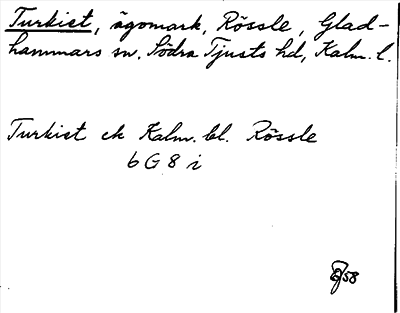 Turkiet, ägomark, Rössle, Glad-
hammars sn. Södra Tjusts hd, Kalm. l.
Turkiet ek Kalm. bl. Rössle
6 G 8 i
58